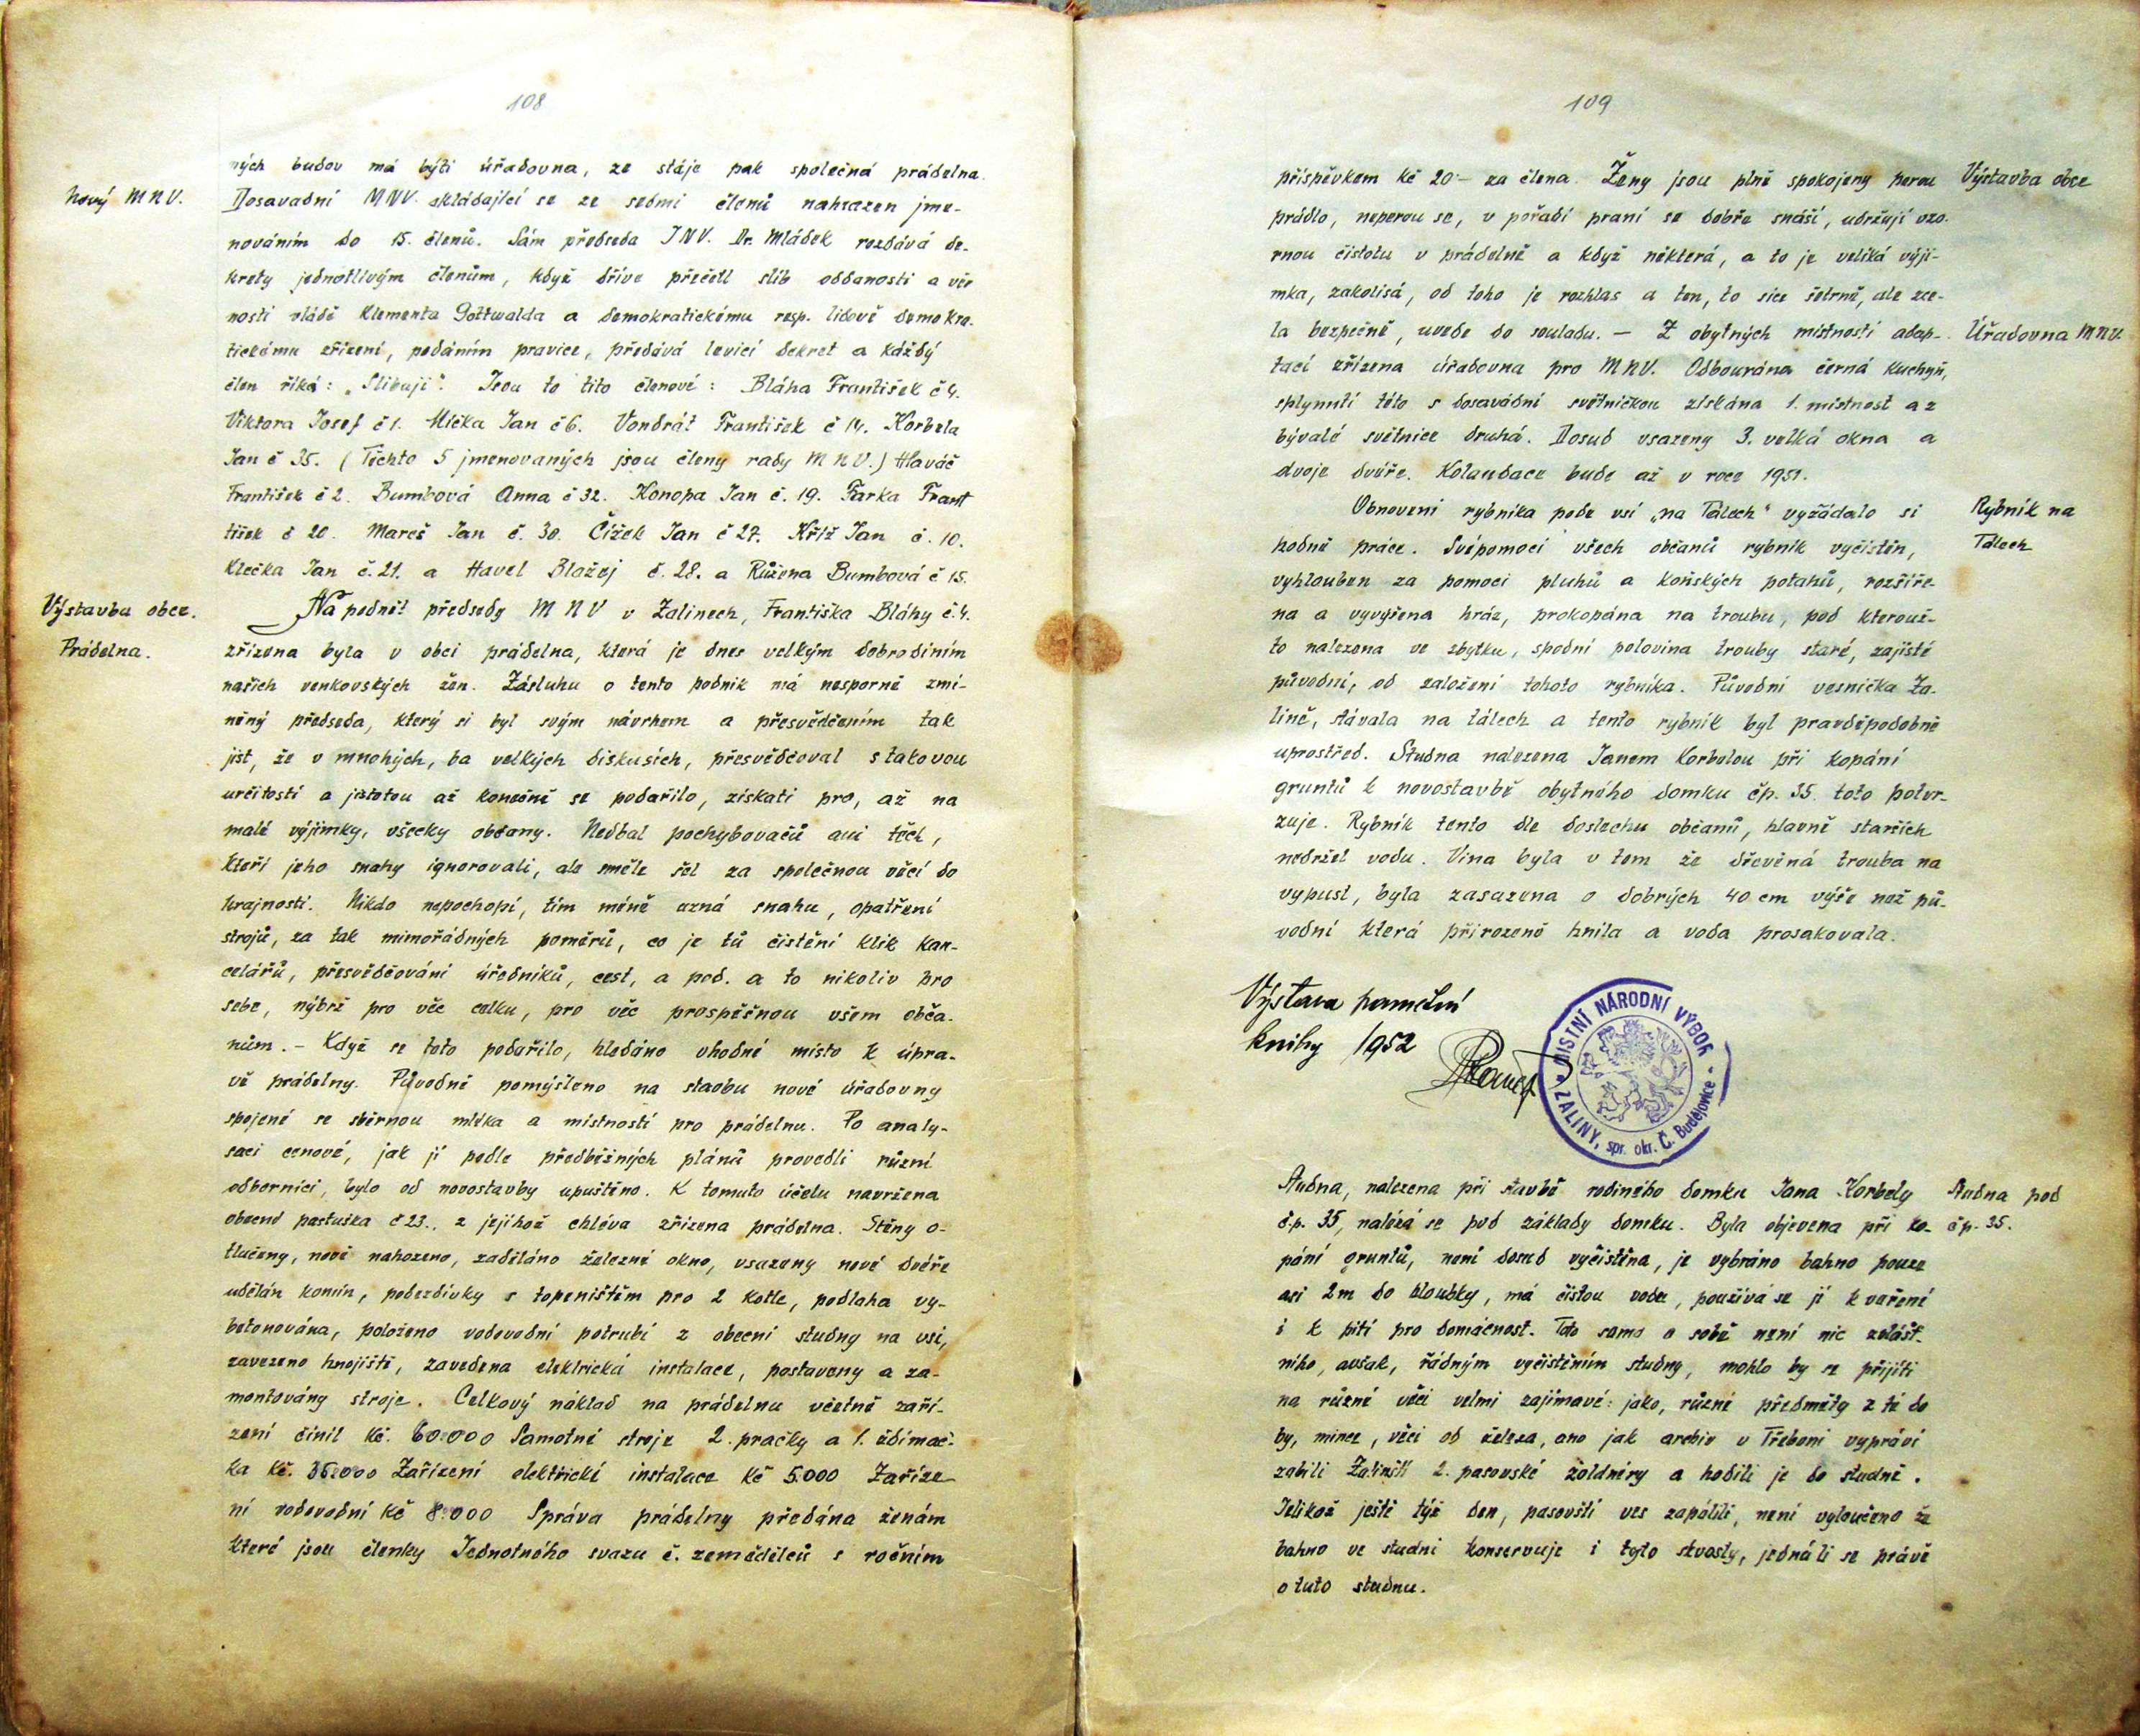 108
ných budov má býti úřadovna, ze stáje pak společná prádelna.
Nový MNV.
Dosavadní MNV. skládající se ze sedmi členů nahrazen jme-
nováním do 15. členů. Sám předseda JNV. Dr. Mládek rozdává de-
krety jednotlivým členům, když dříve přečetl slib oddanosti a věr
nosti vládě Klementa Gottwalda a demokratickému resp. lidově demokra-
tickému zřízení, podáním pravice, předává levicí dekret a káždý
člen říká: „Slibuji". Jsou to tito členové: Bláha František č 4.
Viktora Josef č 1. Mička Jan č 6. Vondrát František č 14. Korbela
Jan č 35. (Těchto 5 jmenovaných jsou členy rady MNV.) Hlaváč
František č 2. Bumbová Anna č 32. Konopa Jan č. 19. Farka Frant
tišek č 20. Mareš Jan č. 30. Čížek Jan č 27. Kříž Jan č. 10.
Klečka Jan č. 21. a Havel Blažej č. 28. a Růžena Bumbová č 15.
Výstavba obce.
Prádelna.
Na podnět předsedy MNV v Zalinech, Františka Bláhy č. 4.
zřízena byla v obci prádelna, která je dnes velkým dobrodiním
našich venkovských žen. Zásluhu o tento podnik má nesporně zmí-
něný předseda, který si byl svým návrhem a přesvědčením tak
jist, že v mnohých, ba velkých diskusích, přesvědčoval s takovou
určitostí a jistotou až konečně se podařilo, získati pro, až na
malé výjimky, všecky občany. Nedbal pochybovačů ani těch,
kteří jeho snahy ignorovali, ale směle šel za společnou věcí do
krajnosti. Nikdo nepochopí, tím méně uzná snahu, opatření
strojů, za tak mimořádných poměrů, co je tů čistění klik kan-
celářů, přesvědčování úředníků, cest, a pod. a to nikoliv pro
sebe, nýbrž pro věc celku, pro věc prospěšnou všem obča-
nům. – Když se toto podařilo, hledáno vhodné místo k úpra-
vě prádelny. Původně pomýšleno na stavbu nové úřadovny
spojené se sběrnou mléka a místností pro prádelnu. Po analy-
saci cenové, jak jí podle předběžných plánů provedli různí
odborníci, bylo od novostavby upuštěno. K tomuto účelu navržena
obecní pastuška č 23., z jejíhož chléva zřízena prádelna. Stěny o-
tlučeny, nově nahozeno, zaděláno železné okno, vsazeny nové dvéře
udělán komín, podezdívky s topeništěm pro 2 kotle, podlaha vy-
betonována, položeno vodovodní potrubí z obecní studny na vsi,
zavezeno hnojiště, zavedena elektrická instalace, postaveny a za-
montovány stroje. Celkový náklad na prádelnu včetně zaří-
zení činil Kč. 60.000 Samotné stroje 2. pračky a 1. ždímač-
ka Kč. 35.000 Zařízení elektrické instalace Kč 5.000 Zaříze-
ní vodovodní Kč 8.000 Správa prádelny předána ženám
které jsou členky Jednotného svazu č. zemědělců s ročním
109
příspěvkem Kč 20– za člena. Ženy jsou plně spokojeny perou
Výstavba obce
prádlo, neperou se, v pořadí praní se dobře snáší, udržují vzo-
rnou čistotu v prádelně a když některá, a to je veliká výji-
mka, zakolísá, od toho je rozhlas a ten, to sice šetrně, ale zce-
la bezpečně, uvede do souladu. – Z obytných místností adap-
Úřadovna MNV.
tací zřízena úřadovna pro MNV. Odbourána černá kuchyň,
splynutí této s dosavádní světničkou získána 1. místnost a z
bývalé světnice druhá. Dosud vsazeny 3. velká okna a
dvoje dvéře. Kolaudace bude až v roce 1951.
Obnovení rybníka pode vsí „na Tálech" vyžádalo si
Rybník na
Tálech
hodně práce. Svépomocí všech občanů rybník vyčistěn,
vyhlouben za pomoci pluhů a koňských potahů, rozšíře-
na a vyvýšena hráz, prokopána na troubu, pod kterouž-
to nalezena ve zbytku, spodní polovina trouby staré, zajisté
původní, od založení tohoto rybníka. Původní vesnička Ža-
lině, stávala na tálech a tento rybník byl pravděpodobně
uprostřed. Studna nalezena Janem Korbelou při kopání
gruntů k novostavbě obytného domku čp. 35. toto potvr-
zuje. Rybník tento dle doslechu občanů, hlavně starších
nedržel vodu. Vina byla v tom že dřevěná trouba na
výpust, byla zasazena o dobrých 40 cm výše než pů-
vodní která přirozeně hnila a voda prosakovala.
Výstava pamětní
knihy 1952
MÍSTNÍ NÁRODNÍ VÝBOR
ZALINY, spr. okr. Č. Budějovice
Studna, nalezena při stavbě rodiného domku Jana Korbely
Studna pod
čp. 35.
č.p. 35, nalézá se pod základy domku. Byla objevena při ko-
pání gruntů, není dosud vyčistěna, je vybráno bahno pouze
asi 2m do hloubky, má čistou vodu, používá se jí k vaření
i k pití pro domácnost. Toto samo o sobě není nic zvlášt-
ního, avšak, řádným vyčistěním studny, mohlo by se přijíti
na různé věci velmi zajímavé: jako, různé předměty z té do
by, mince, věci od železa, ano jak archiv v Třeboni vypráví
zabili Zalinští 2. pasovské žoldnéry a hodili je do studně.
Jelikož ještě týž den, pasovští ves zapálili, není vyloučeno že
bahno ve studni konservuje i tyto skvosty, jedná li se právě
o tuto studnu.